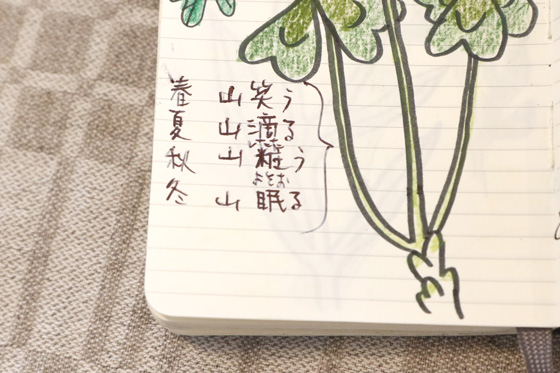 春 山笑う
夏 山滴る
秋 山粧う
よそお
冬 山眠る